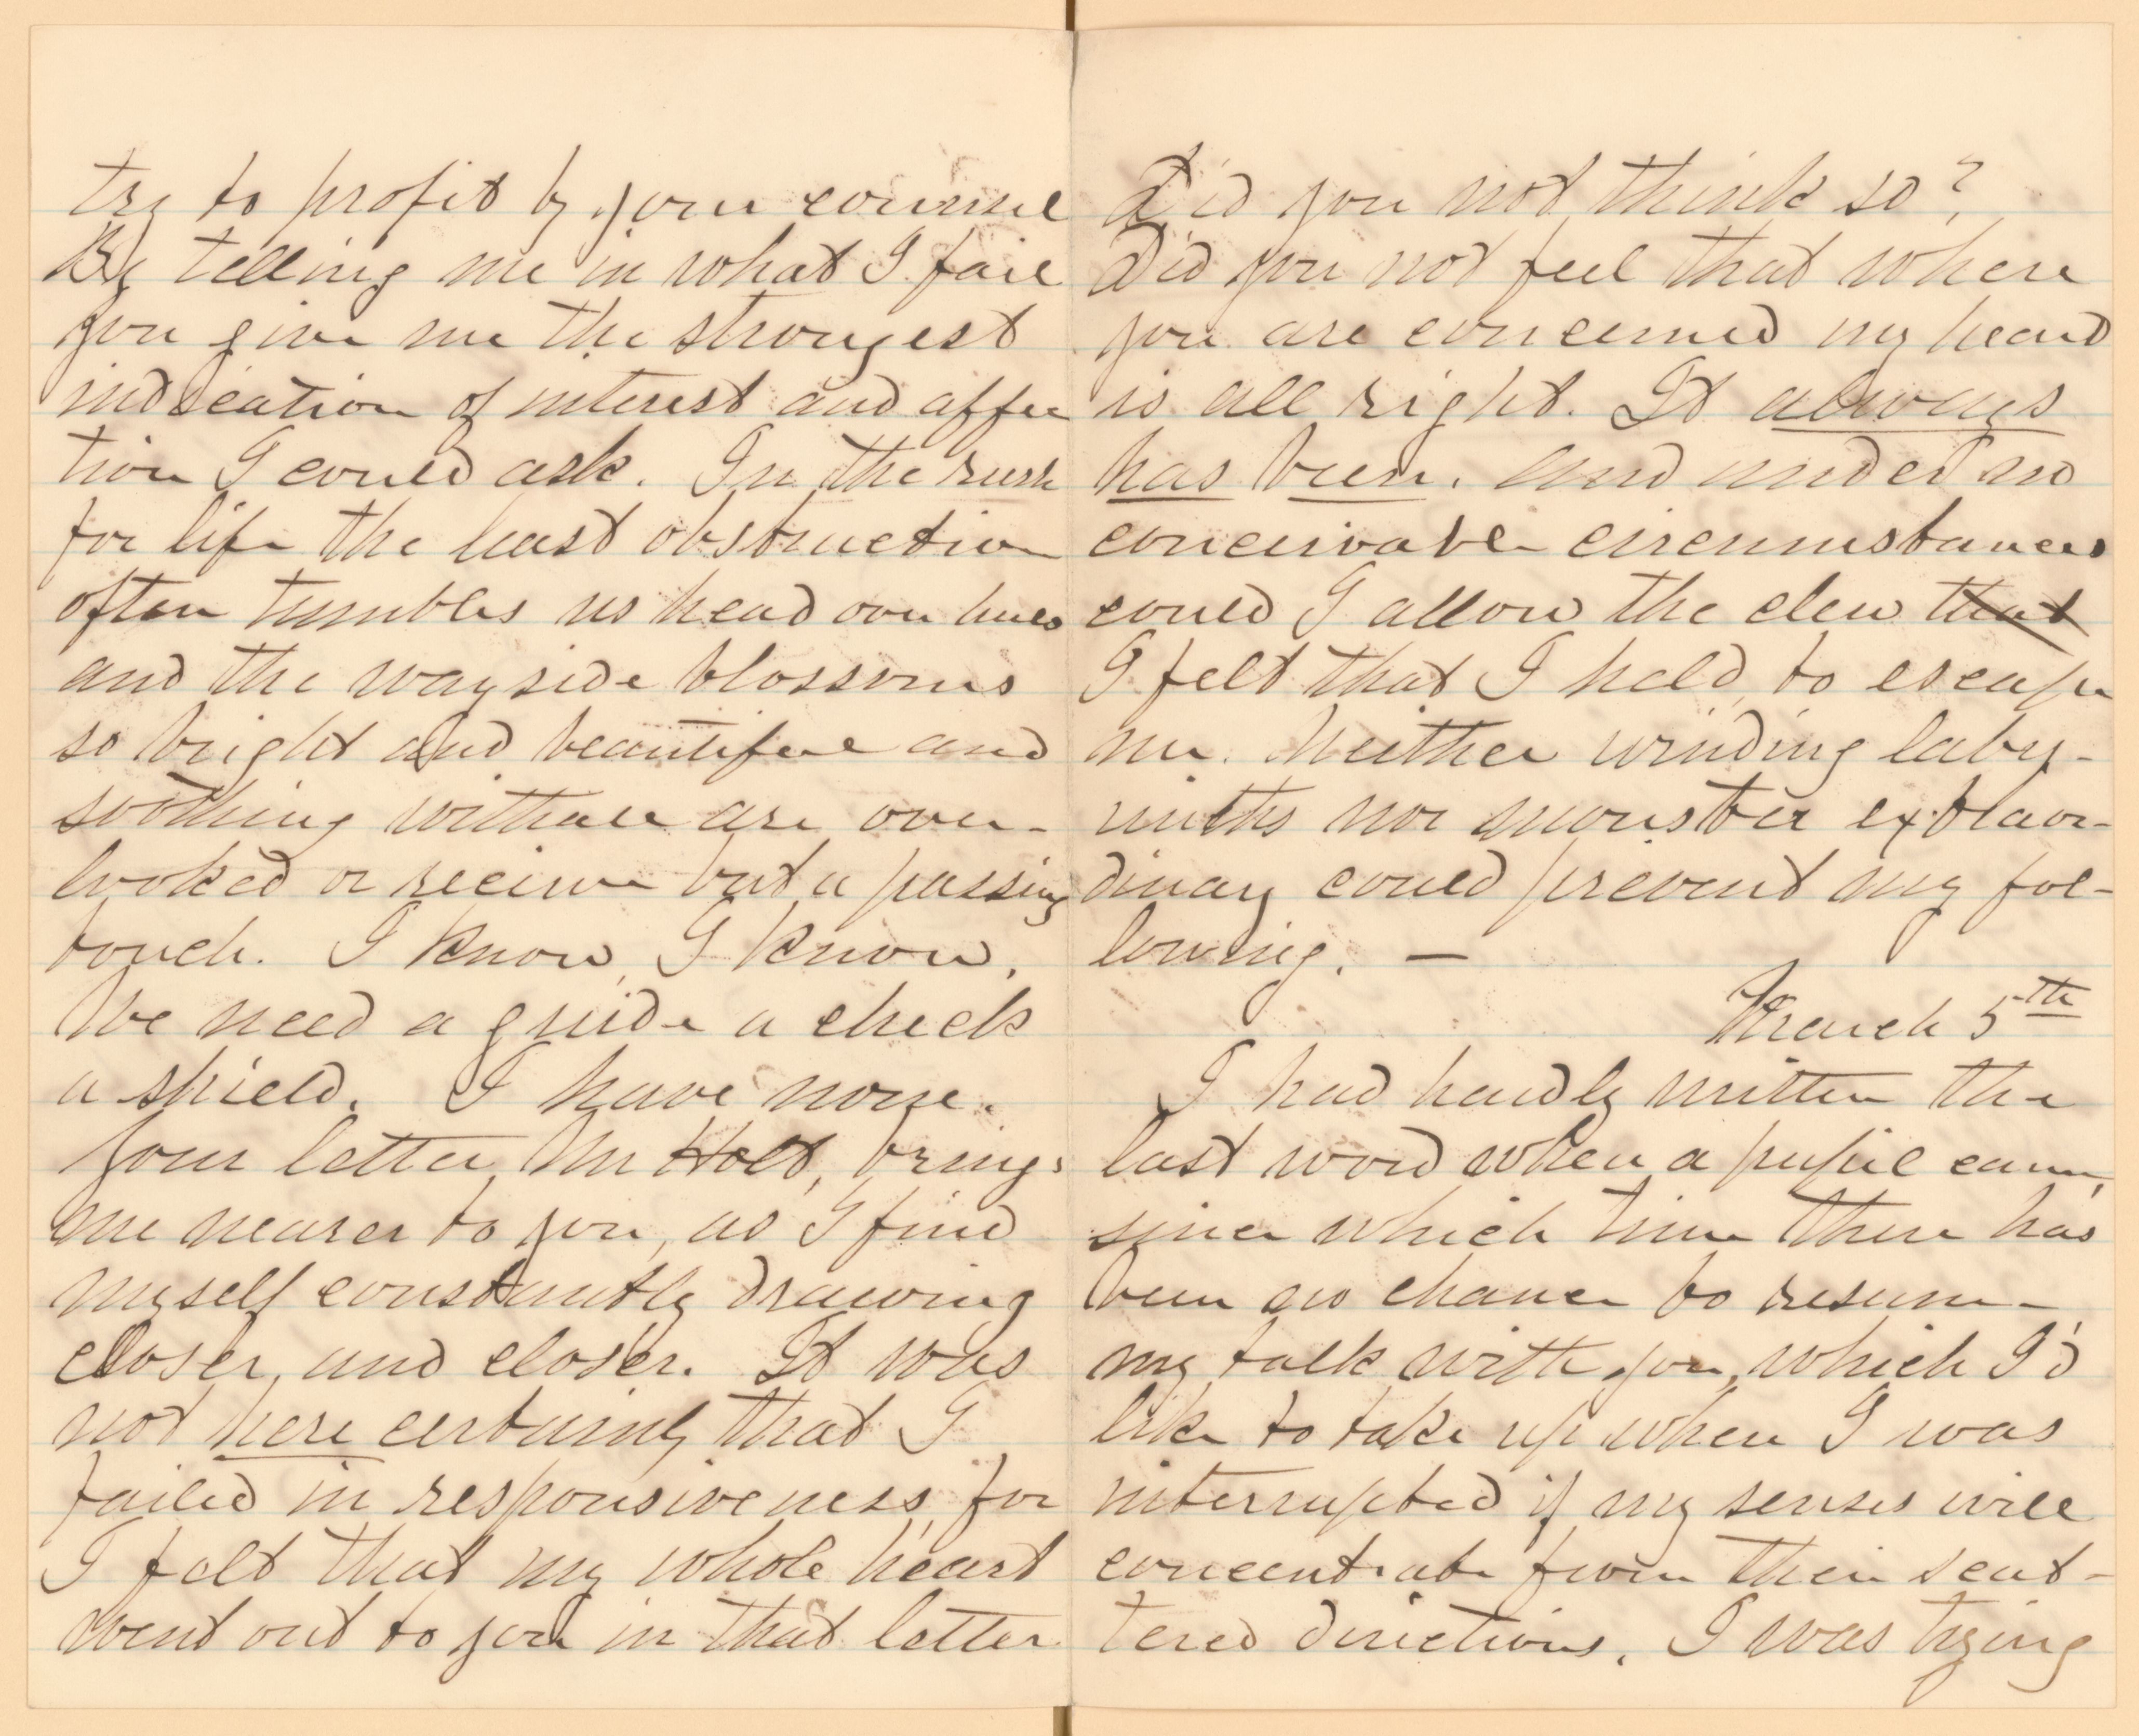 try to profit by your counsel
By telling me in what I fail
you give me the strongest
indication of interest and affec
tion I could ask. In the rush
for life the least obstruction
often tumbles us head over heels
and the wayside blossoms
so bright and beautiful and
soothing withall are over-
looked or receive but a passing
touch. I know, I know,
We need a guide a check
a shield. I have none.
Your letter, Mr Holt, brings
me nearer to you, as I find
myself constantly drawing
closer, and closer. It was
not here certainly that I
failed in responsiveness, for
I felt that my whole heart
went out to you in that letter
Did you not think so?
Did you not feel that where
you are concerned my heart
is all right. It always
has been. And under no
conceivable circumstances
could I allow the clew that
I felt that I held, to escape
me. Neither winding laby-
rinths nor monster extraor-
dinary could prevent my fol-
lowing. —
March 5th
I had hardly written the
last word when a pupil came,
since which time there has
been no chance to resume
my talk with you, which I'd
like to take up when I was
interrupted if my senses will
concentrate from their scat-
tered directions. I was trying